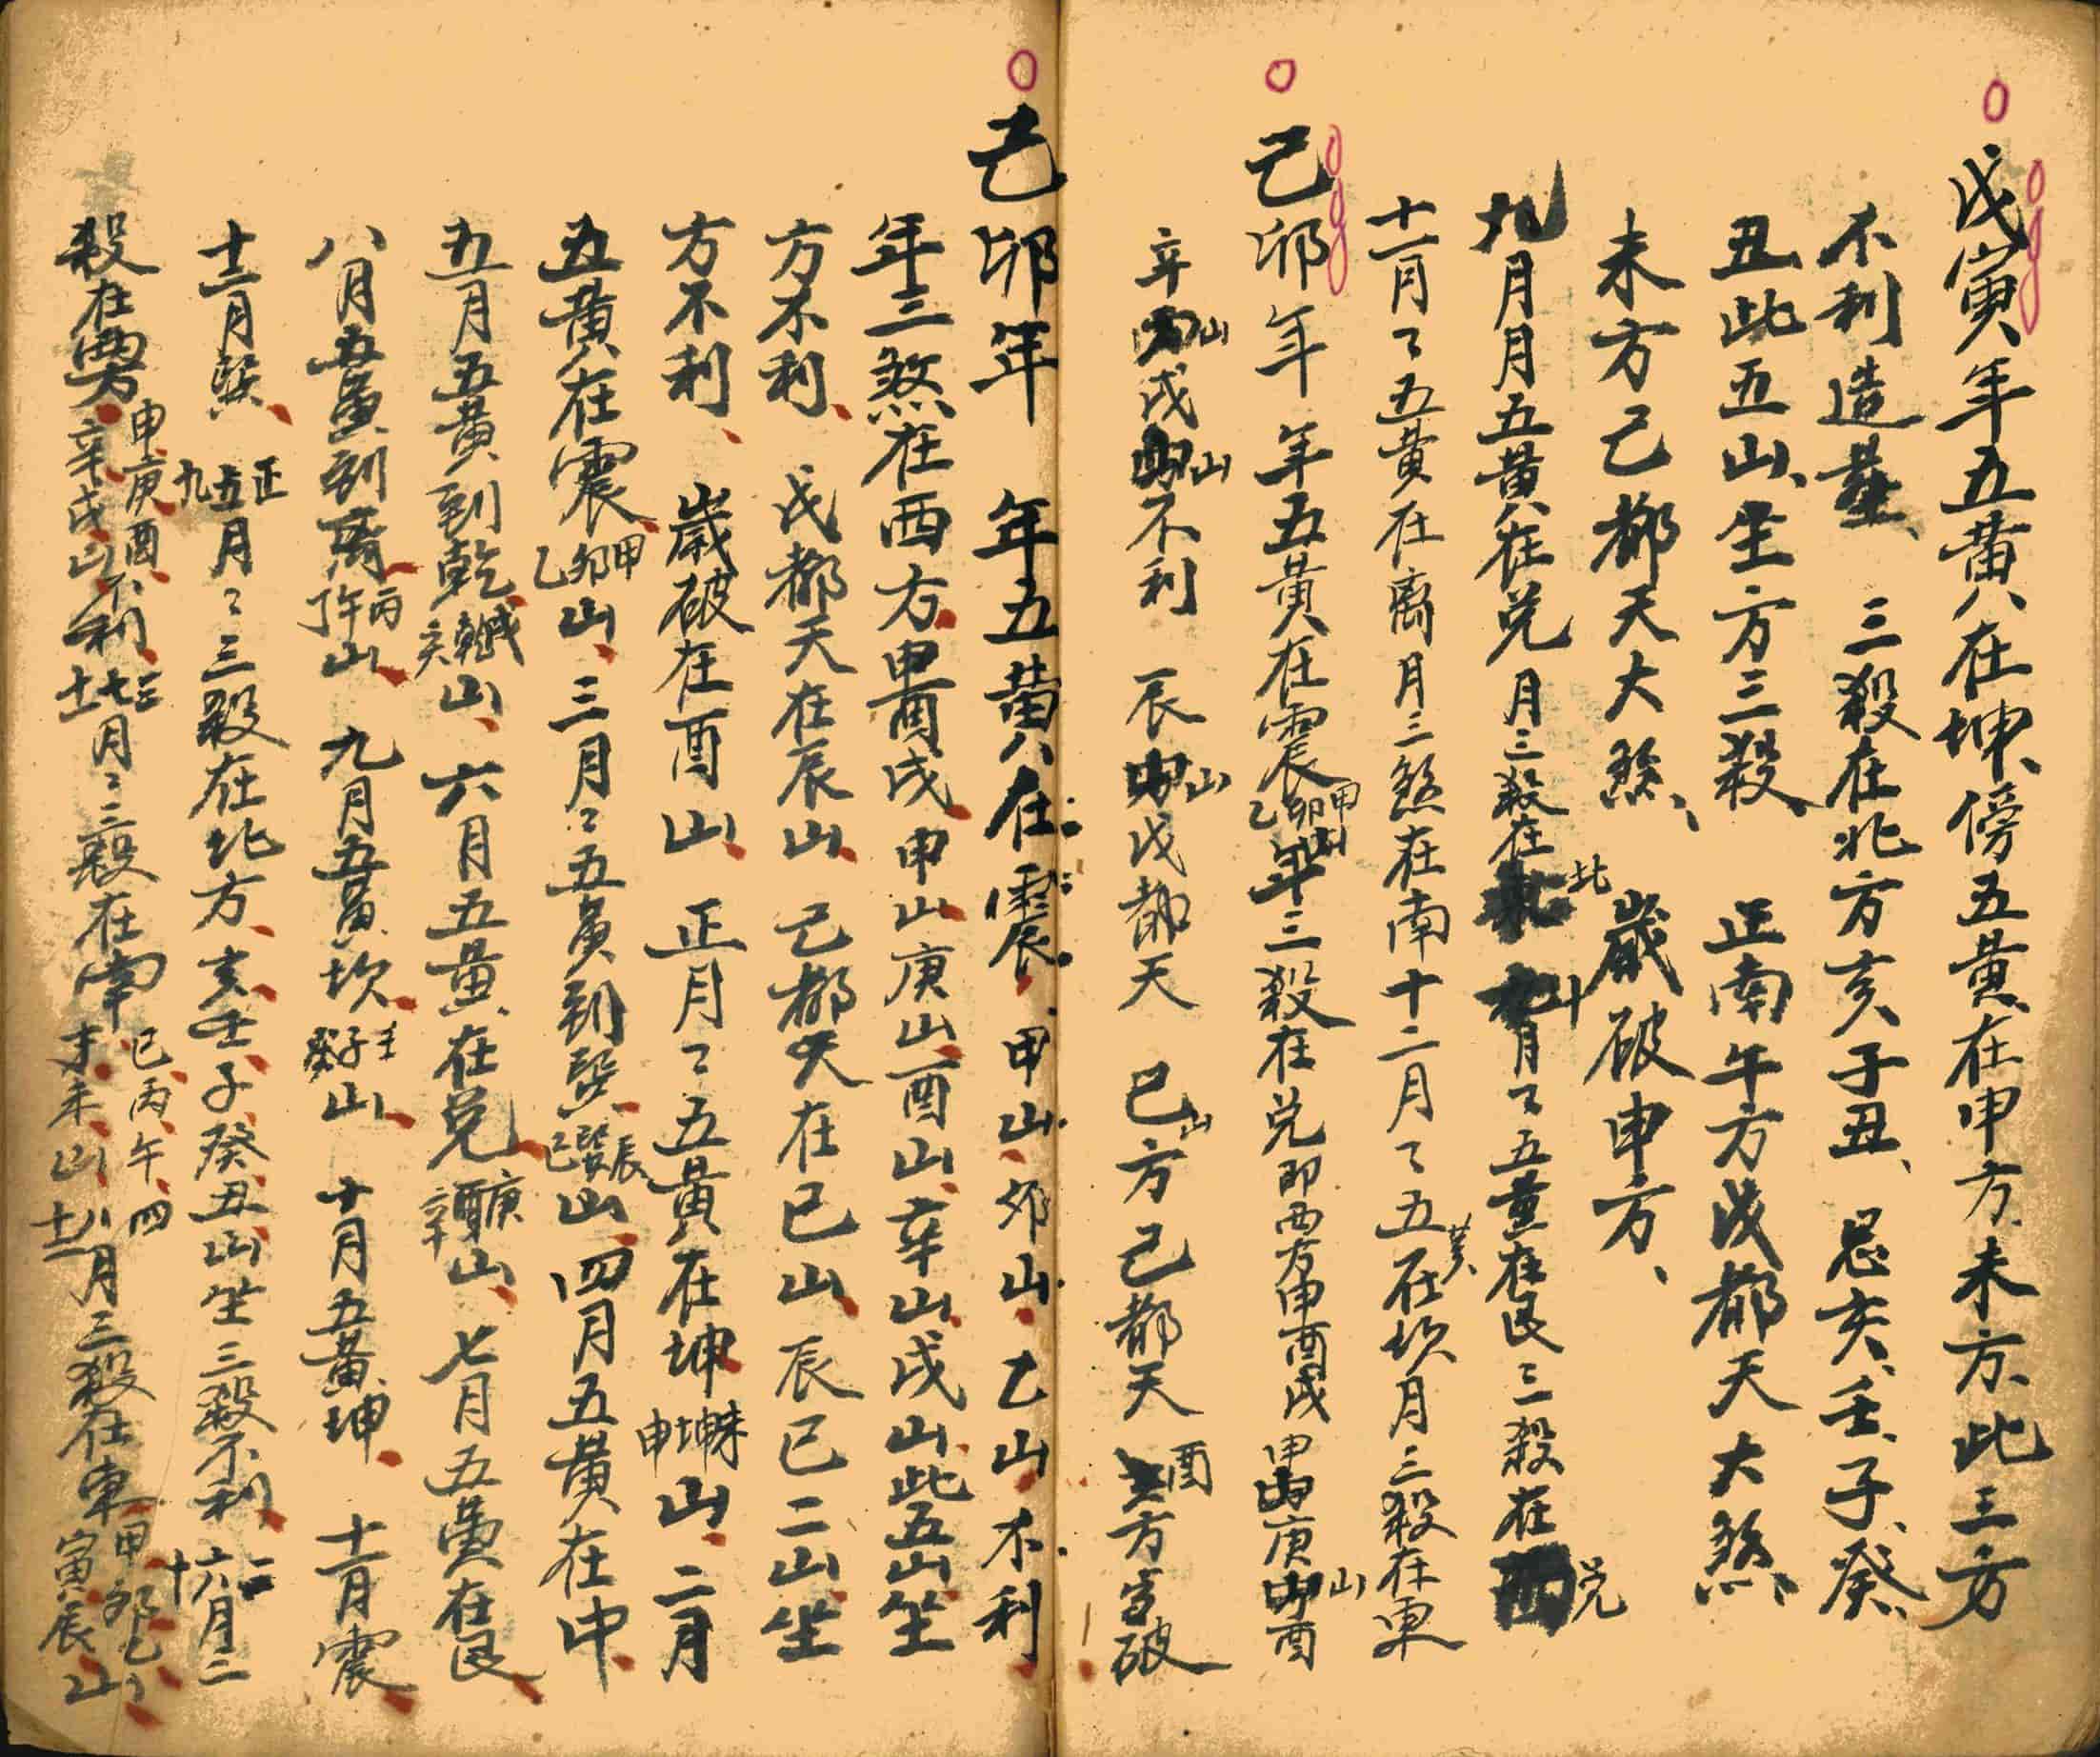 戊寅年五黄在坤、傍五黄在申方、未方、此三方
不利造葬、三殺在北方亥子丑、忌亥、壬、子、癸、
丑此五山、坐方三殺、正南午方戊都天大煞、
未方己都天大煞、歲破申方、
九月月五黄在兌月三殺在北十月々五黄在艮三殺在兌
十一月々五黄在离月三煞在南十二月々五黄在坎月三殺在東
己卯年年五黄在震甲卯乙山年三殺在兌即西方申酉戌申山庚山酉
辛山戌山不利辰山戊都天巳山方己都天酉方歲破
己卯年年五黄在震、甲山、卯山、乙山不利
年三煞在西方申酉戌、申山庚山酉山、辛山、戌山此五山坐
方不利、戊都天在辰山、己都天在巳山、辰巳二山坐
方不利、歲破在酉山、正月々五黄在坤未坤申山、二月
五黄在震甲卯乙山、三月々五黄到巽辰巽巳山四月五黄在中、
五月五黄到乾戌乾亥山、六月五黄在兌庚酉辛山、七月五黄在艮
八月五黄到离丙午丁山、九月五黄坎壬子癸山、十月五黄坤、十一月震
十二月巽、正五九月々三殺在北方、亥壬子癸丑山坐三殺不利、二六十月三
殺在西方申庚酉辛戌山不利、三七十一月々三殺在南巳丙午丁未山、四八十二月三殺在東甲卯乙寅辰山